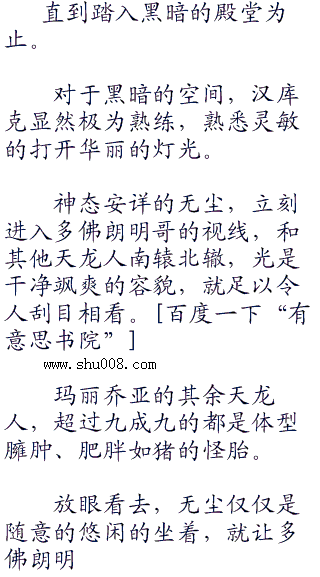 直到踏入黑暗的殿堂为
止。
对于黑暗的空间，汉库
克显然极为熟练，熟悉灵敏
的打开华丽的灯光。
神态安详的无尘，立刻
进入多佛朗明哥的视线，和
其他天龙人南辕北辙，光是
干净飒爽的容貌，就足以令
人刮目相看。[百度一下“有
意思书院”]
www.shu008.com
玛丽乔亚的其余天龙
人，超过九成九的都是体型
臃肿、肥胖如猪的怪胎。
放眼看去，无尘仅仅是
随意的悠闲的坐着，就让多
佛朗明